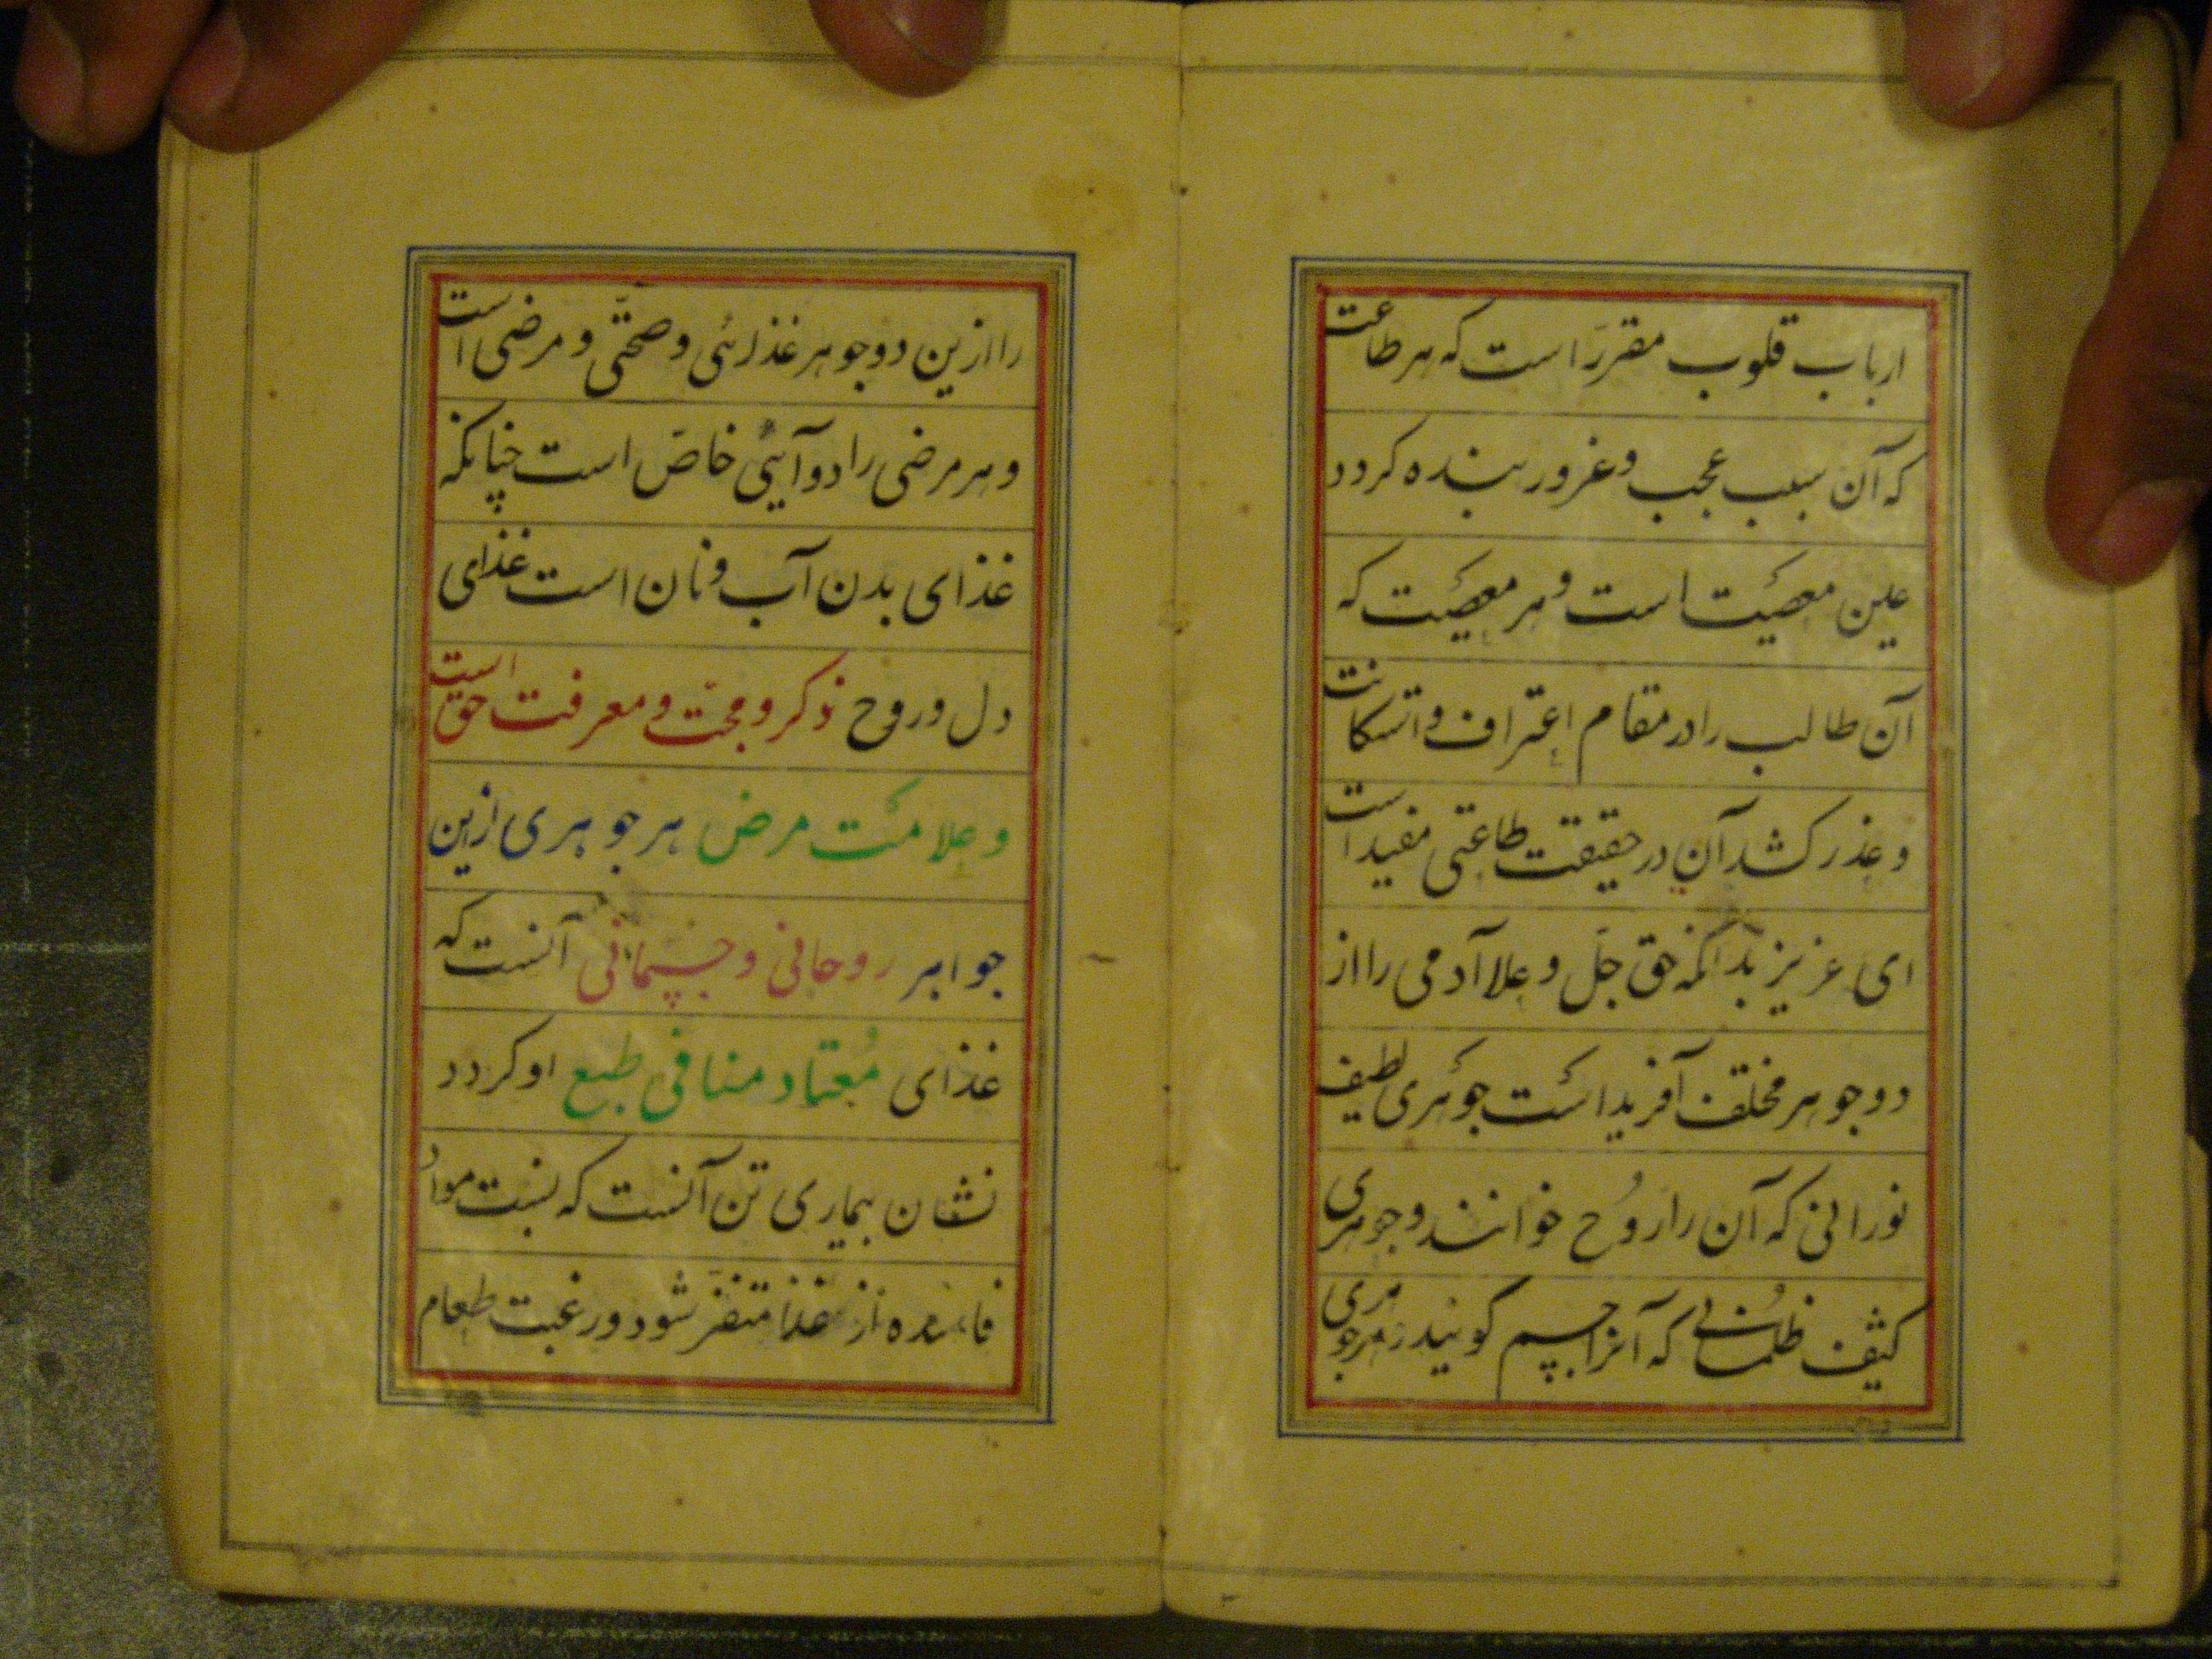 ارباب قلوب مقرر است که هر طاعت
که آن سبب عجب و غرور بنده کردد
عین معصیت است و هر معصیت که
آن طالب را در مقام اعتراف و استکانت
و عذر کشد آن در حقیقت طاعتی مفید است
ای عزیز بدانکه حق جل و علا آدمی را از
دو جوهر مختلف آفریداست جوهری لطیف
نورانی که آن را روُح خوانند و جوهری
کثیف ظلمانی که آنرا جسم کویند و هر جوهری
را ازین دو جوهر غذائی و صحتّی و مرضی است
و هر مرضی را دوآئی خاصّ است چنانکه
غذای بدن آب و نان است غذای
دل و روح ذکر و محبّت و معرفت حق است
و علامت مرض هر جوهری ازین
جواهر روحانی و جسمانی آنست که
غذای مُعتاد منافی طبع او کردد
نشان بیماری تن آنست که بسبب موادّ
فاسده از غذا متنفّر شود و رغبت طعام